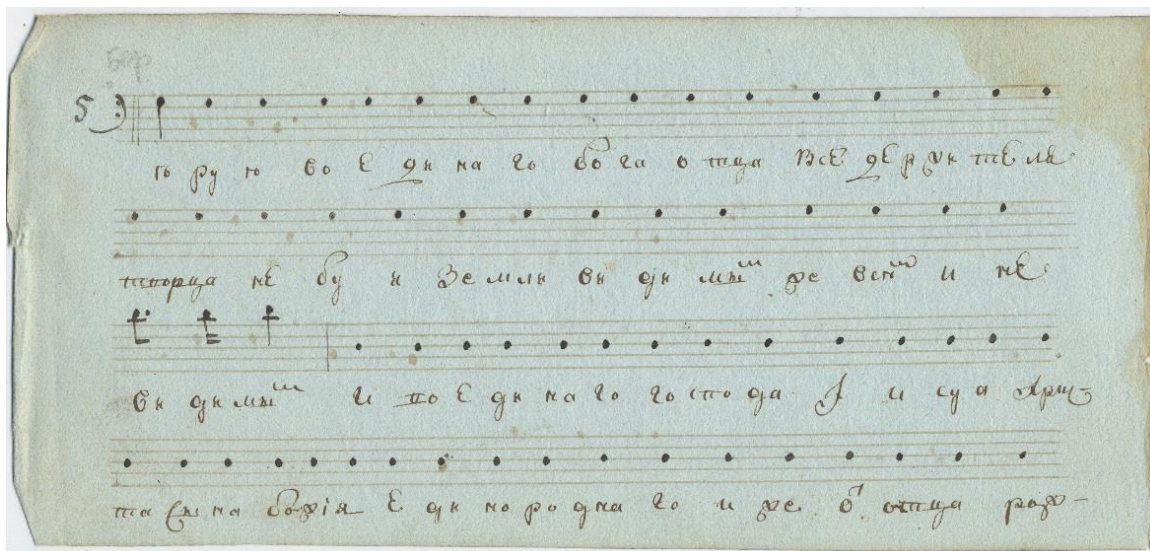 бор
5
ю рую во Е ди на го бога отца ВСЕ дЕр жи тЕ лЕ
творца нЕ бу и Земли ви ди мым же всем и нЕ
ви ди мым И во Е ди на го господа І и суа Хрис-
та Сы на божія Е ди но ро дна го и же о отца рож-